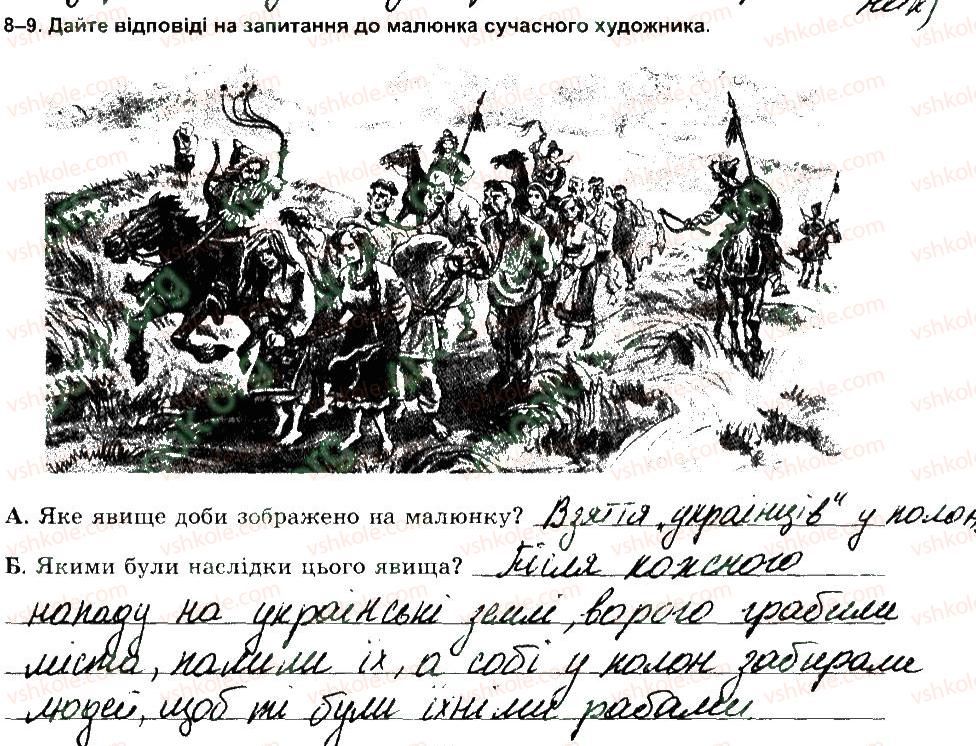 8–9. Дайте відповіді на запитання до малюнка сучасного художника.
А. Яке явище доби зображено на малюнку? Взяття „українців" у полон,
Б. Якими були наслідки цього явища? Після кожсного
нападу на українські землі, ворого грабили
міста, палили їх, а собі у полон забирали
людей, щоб ті були їхніми рабами.